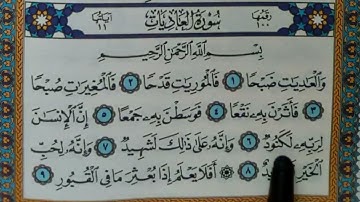 رقمها ١٠٠ سورة العاديات آياتها ١١
بِسْمِ اللَّهِ الرَّحْمَٰنِ الرَّحِيمِ
وَالْعَادِيَاتِ ضَبْحًا ١ فَالْمُورِيَاتِ قَدْحًا ٢ فَالْمُغِيرَاتِ صُبْحًا
٣ فَأَثَرْنَ بِهِ نَقْعًا ٤ فَوَسَطْنَ بِهِ جَمْعًا ٥ إِنَّ الْإِنْسَانَ
لِرَبِّهِ لَكَنُودٌ ٦ وَإِنَّهُ عَلَىٰ ذَٰلِكَ لَشَهِيدٌ ٧ وَإِنَّهُ لِحُبِّ
الْخَيْرِ ٨ أَفَلَا يَعْلَمُ إِذَا بُعْثِرَ مَا فِي الْقُبُورِ ٩